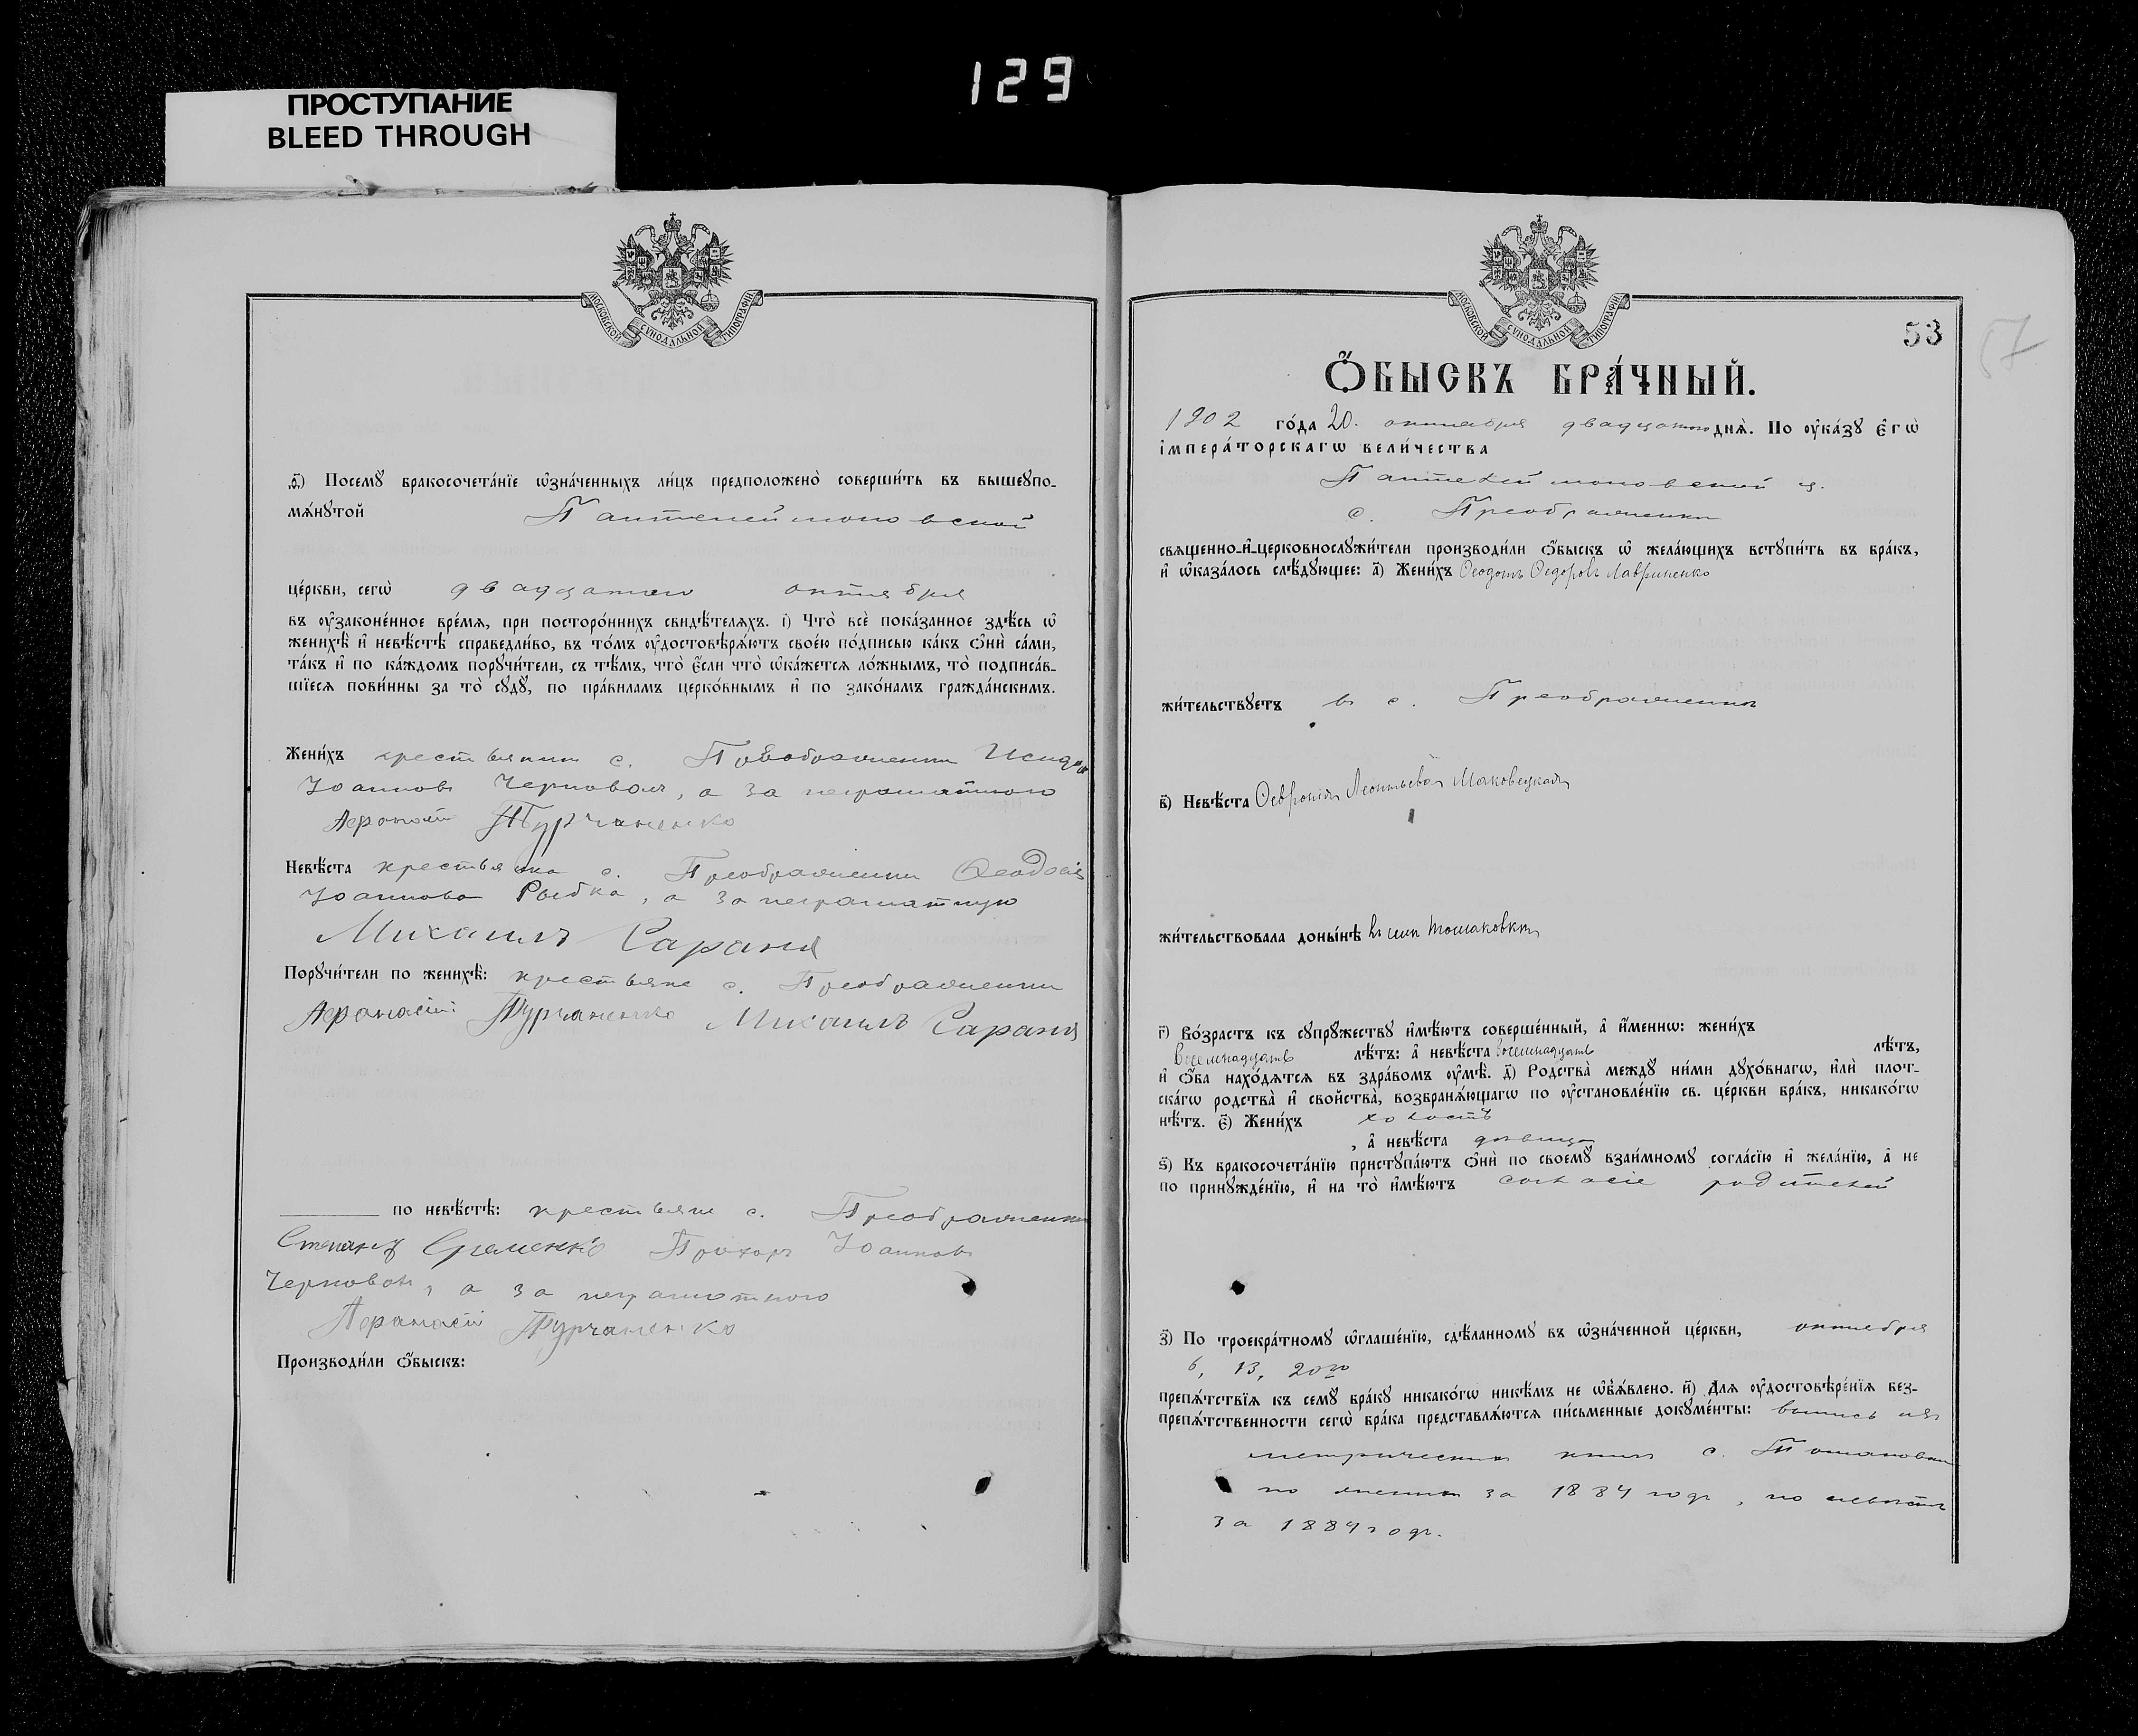 129
ПРОСТУПАНИЕ
BLEED THROUGH
МОСКОВСКОЙ СѴНОДАЛЬНОЙ ТИПОГРАФІИ
д҃) Посемꙋ бракосочета́нїе ѡ҆зна́ченныхъ ли́цъ предположено̀ соверши́ть въ вышеꙋпо-
мѧ́нꙋтой Пантелеймоновской
це́ркви, сегѡ̀ двадцатаго октября
въ ᲂу҆зако́ненное вре́мѧ, при посторо́ннихъ свидѣ́телѧхъ. і҃) Что̀ всѐ пока́занное здѣ́сь ѡ҆
женихѣ̀ и҆ невѣ́стѣ справедли́во, въ то́мъ ᲂу҆достовѣрѧ́ютъ свое́ю по́дписью ка́къ ѻ҆нѝ са́ми,
та́къ и҆ по ка́ждомъ порꙋчи́тели, съ тѣ́мъ, что̀ є҆́сли что̀ ѡ҆ка́жетсѧ ло́жнымъ, то̀ подписа́в-
шїесѧ пови́нны за то̀ сꙋдꙋ̀, по пра́виламъ церко́внымъ и҆ по зако́намъ гражда́нскимъ.
Жени́хъ крестьянин с. Преображенки Исидор
Іоаннов Черновол, а за неграмотного
Афанасій Турчаненко
Невѣ́ста крестьянка с. Преображенки Ѳеодосія
Іоаннова Рыбка, а за неграмотную
Михаилъ Сараня
Порꙋчи́тели по женихѣ̀: крестьяне с. Преображенки
Афанасій Турчаненко Михаилъ Сараня
по невѣ́стѣ: крестьяне с. Преображенки
Степанъ Еременко Прохор Іоаннов
Черновол, а за неграмотного
Афанасій Турчаненко
Производи́ли ѻ҆́быскъ:
МОСКОВСКОЙ СѴНОДАЛЬНОЙ ТИПОГРАФІИ
53
57
Ѻ҆́БЫСКЪ БРА́ЧНЫЙ.
1902 го́да 20. октября двадцатого днѧ̀. По ᲂу҆ка́зꙋ є҆гѡ̀
і҆мпера́торскагѡ вели́чества
Пантелеймоновской ц.
с. Преображенки
свѧщенно-и҆-церковнослꙋжи́тели производи́ли ѻ҆́быскъ ѡ҆ жела́ющихъ встꙋпи́ть въ бра́къ,
и҆ ѡ҆каза́лось слѣ́дꙋющее: а҃) Жени́хъ Ѳеодотъ Ѳедоровъ Лавриненко
жи́тельствꙋетъ в с. Преображенки
в҃) Невѣ́ста Ѳевронія Леонтьева Маковецкая
жи́тельствовала доны́нѣ въ селѣ Томаковкѣ
г҃) Во́зрастъ къ сꙋпрꙋ́жествꙋ и҆мѣ́ютъ соверше́нный, а҆ и҆́меннѡ: жени́хъ
восемнадцать лѣ́тъ: а҆ невѣ́ста восемнадцать лѣ́тъ,
и҆ ѻ҆́ба нахо́дѧтсѧ въ здра́вомъ ᲂу҆мѣ̀. д҃) Родства̀ междꙋ̀ ни́ми дꙋхо́внагѡ, и҆лѝ плот-
ска́гѡ родства̀ и҆ свойства̀, возбранѧ́ющагѡ по ᲂу҆становле́нїю св. це́ркви бра́къ, никако́гѡ
нѣ́тъ. є҃) Жени́хъ холостъ
, а҆ невѣ́ста девица
ѕ҃) Къ бракосочета́нїю пристꙋпа́ютъ ѻ҆нѝ по своемꙋ̀ взаи́мномꙋ согла́сїю и҆ жела́нїю, а҆ не
по принꙋжде́нїю, и҆ на то̀ и҆мѣ́ютъ согласіе родителей
з҃) По троекра́тномꙋ ѡ҆глаше́нїю, сдѣ́ланномꙋ въ ѡ҆зна́ченной це́ркви, октября
6, 13, 20го
препѧ́тствїѧ къ семꙋ̀ бра́кꙋ никако́гѡ никѣ́мъ не ѡ҆б̾ѧ́влено. и҃) Длѧ ᲂу҆достовѣре́нїѧ без-
препѧ́тственности сегѡ̀ бра́ка представлѧ́ютсѧ пи́сьменные докꙋме́нты: выпись из
метрических книг с. Томаковки
по женихе за 1884 годъ, по невесте
за 1884 годъ.